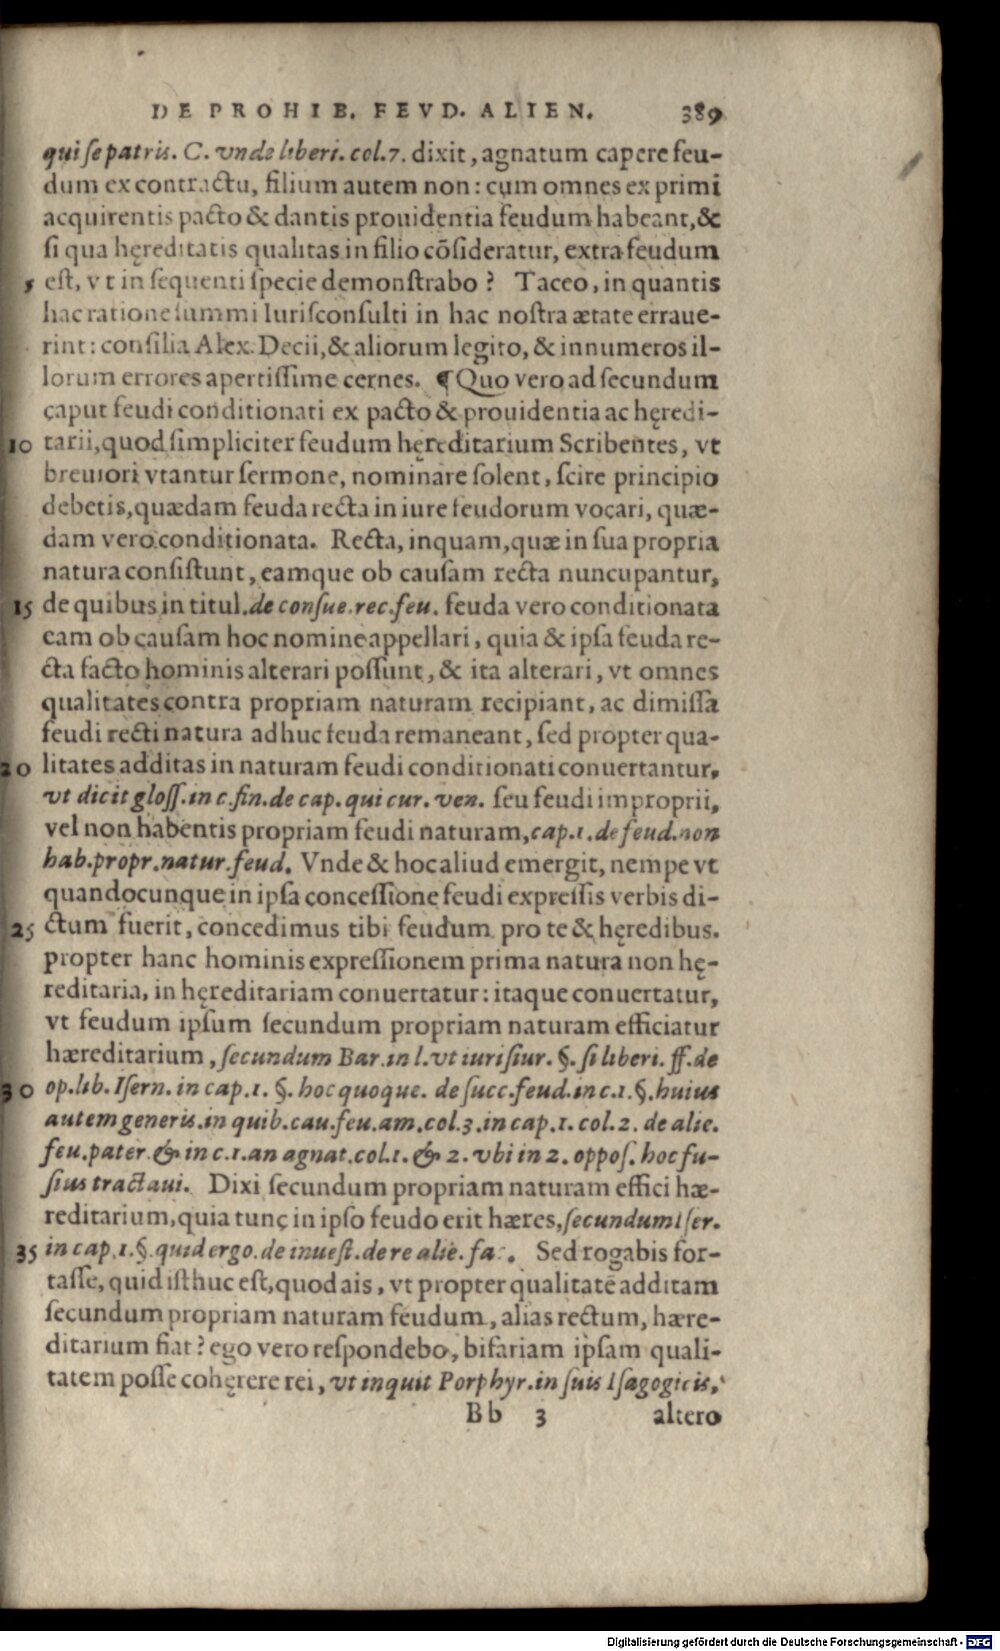 DE PROHIB. FEVD. ALIEN. 389
qui ſe patris. C. vnde liberi. col. 7. dixit, agnatum capere feu-
dum ex contractu, filium autem non: cum omnes ex primi
acquirentis pacto & dantis prouidentia feudum habeant, &
ſi qua hęreditatis qualitas in filio cōſideratur, extra feudum
5 eſt, vt in ſequenti ſpecie demonſtrabo? Taceo, in quantis
hac ratione ſummi Iuriſconſulti in hac noſtra ætate erraue-
rint: conſilia Alex. Decii, & aliorum legito, & innumeros il-
lorum errores apertiſſime cernes. ¶ Quo vero ad ſecundum
caput feudi conditionati ex pacto & prouidentia ac hęredi-
10 tarii, quod ſimpliciter feudum hęreditarium Scribentes, vt
breuiori vtantur ſermone, nominare ſolent, ſcire principio
debetis, quædam feuda recta in iure feudorum vocari, quæ-
dam vero conditionata. Recta, inquam, quæ in ſua propria
natura conſiſtunt, eamque ob cauſam recta nuncupantur,
15 de quibus in titul. de conſue. rec. feu. feuda vero conditionata
eam ob cauſam hoc nomine appellari, quia & ipſa feuda re-
cta facto hominis alterari poſſunt, & ita alterari, vt omnes
qualitates contra propriam naturam recipiant, ac dimiſſa
feudi recti natura adhuc feuda remaneant, ſed propter qua-
20 litates additas in naturam feudi conditionati conuertantur,
vt dicit gloſſ. in c. fin. de cap. qui cur. ven. ſeu feudi improprii,
vel non habentis propriam feudi naturam, cap. 1. de feud. non
hab. propr. natur. feud. Vnde & hoc aliud emergit, nempe vt
quandocunque in ipſa conceſſione feudi expreſſis verbis di-
25 ctum fuerit, concedimus tibi feudum pro te & hęredibus.
propter hanc hominis expreſſionem prima natura non hę-
reditaria, in hęreditariam conuertatur: itaque conuertatur,
vt feudum ipſum ſecundum propriam naturam efficiatur
hæreditarium, ſecundum Bar. in l. vt iuriſiur. §. ſi liberi. ff. de
30 op. lib. Iſern. in cap. 1. §. hoc quoque. de ſucc. feud. in c. 1. §. huius
autem generis. in quib. cau. feu. am. col. 3. in cap. 1. col. 2. de alie.
feu. pater. & in c. 1. an agnat. col. 1. & 2. vbi in 2. oppoſ. hoc fu-
ſius tractaui. Dixi ſecundum propriam naturam effici hæ-
reditarium, quia tunc in ipſo feudo erit hæres, ſecundum Iſer.
35 in cap. 1. §. quid ergo. de inueſt. de re alie. fa. Sed rogabis for-
taſſe, quid iſthuc eſt, quod ais, vt propter qualitatē additam
ſecundum propriam naturam feudum, alias rectum, hære-
ditarium fiat? ego vero reſpondebo, bifariam ipſam quali-
tatem poſſe cohęrere rei, vt inquit Porphyr. in ſuis Iſagogicis,
Bb 3 altero
Digitalisierung gefördert durch die Deutsche Forschungsgemeinschaft - DFG